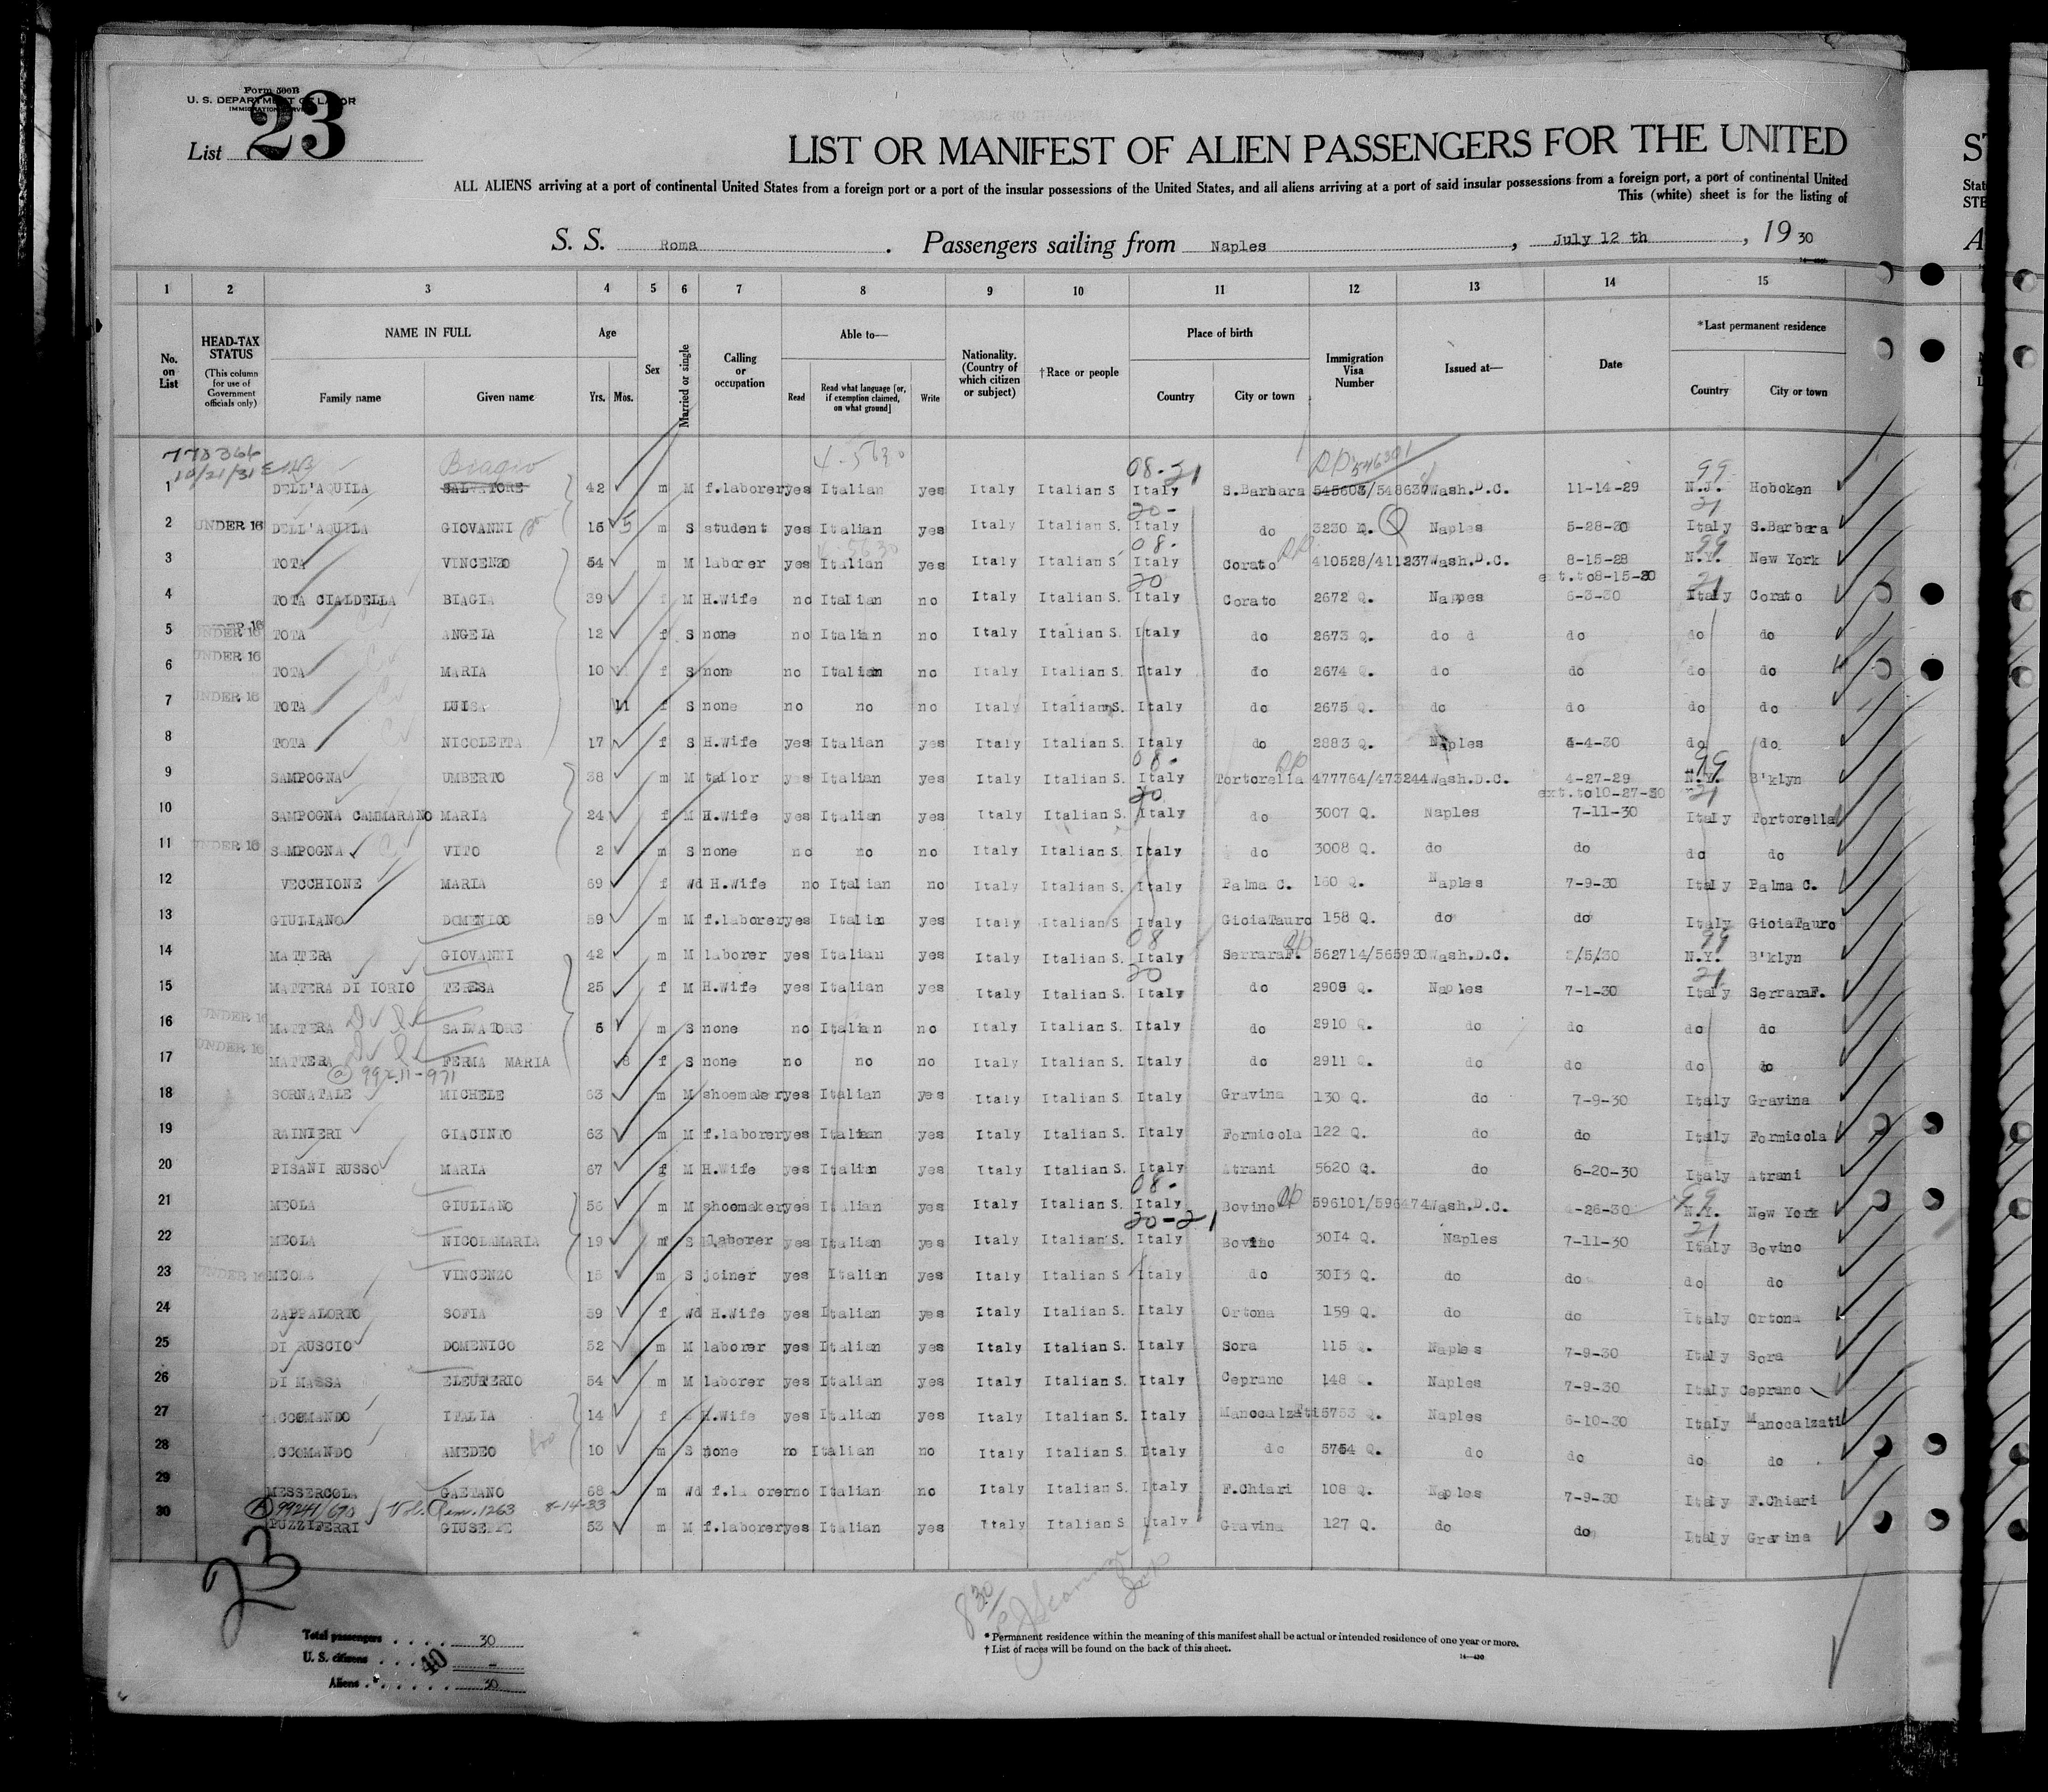 Form 500B
U. S. DEPARTMENT OF LABOR
IMMIGRATION SERVICE
List 23
LIST OR MANIFEST OF ALIEN PASSENGERS FOR THE UNITED
ALL ALIENS arriving at a port of continental United States from a foreign port or a port of the insular possessions of the United States, and all aliens arriving at a port of said insular possessions from a foreign port, a port of continental United
This (white) sheet is for the listing of
S. S. Roma. Passengers sailing from Naples, July 12 th, 19 30
1 2 3 4 5 6 7 8 9 10 11 12 13 14 15
No. on List
HEAD-TAX STATUS (This column for use of Government officials only)
NAME IN FULL Family name Given name
Age Yrs. Mos.
Sex
Married or single
Calling or occupation
Able to— Read Read what language [or, if exemption claimed, on what ground] Write
Nationality. (Country of which citizen or subject)
†Race or people
Place of birth Country City or town
Immigration Visa Number
Issued at—
Date
*Last permanent residence Country City or town
778366 Biagio 4-5630 08-21 DP 546301 99
10/21/31
1 DELL'AQUILA SALVATORE 42 m M f.laborer yes Italian yes Italy Italian S Italy S.Barbara 545603/548637 Wash.D.C. 11-14-29 N.J. Hoboken
20- 21
2 UNDER 16 DELL'AQUILA GIOVANNI 15 5 m S student yes Italian yes Italy Italian S. Italy do 3230 Q. Naples 5-28-30 Italy S.Barbara
4-5630 08- DP 99
3 TOTA VINCENZO 54 m M laborer yes Italian yes Italy Italian S Italy Corato 410528/411237 Wash.D.C. 8-15-28 N.Y. New York
20 ext.to8-15-30 21
4 TOTA CIALDELLA BIAGIA 39 f M H.Wife no Italian no Italy Italian S. Italy Corato 2672 Q. Naples 6-3-30 Italy Corato
5 UNDER 16 TOTA ANGELA 12 f S none no Italian no Italy Italian S. Italy do 2673 Q. do d do do do
6 UNDER 16 TOTA MARIA 10 f S none no Italian no Italy Italian S. Italy do 2674 Q. do do do do
7 UNDER 16 TOTA LUISA 11 f S none no no no Italy Italian S. Italy do 2675 Q. do do do do
8 TOTA NICOLETTA 17 f S H.Wife yes Italian yes Italy Italian S. Italy do 2883 Q. Naples 4-4-30 do do
08- DP 99
9 SAMPOGNA UMBERTO 38 m M tailor yes Italian yes Italy Italian S. Italy Tortorella 477764/473244 Wash.D.C. 4-27-29 N.Y. B'klyn
20 ext.to10-27-30 21
10 SAMPOGNA CAMMARANO MARIA 24 f M H.Wife yes Italian yes Italy Italian S. Italy do 3007 Q. Naples 7-11-30 Italy Tortorella
11 UNDER 16 SAMPOGNA VITO 2 m S none no no no Italy Italian S. Italy do 3008 Q. do do do do
12 VECCHIONE MARIA 69 f Wd H.Wife no Italian no Italy Italian S. Italy Palma C. 160 Q. Naples 7-9-30 Italy Palma C.
13 GIULIANO DOMENICO 59 m M f.laborer yes Italian yes Italy Italian S Italy GioiaTauro 158 Q. do do Italy GioiaTauro
08 DP 99
14 MATTERA GIOVANNI 42 m M laborer yes Italian yes Italy Italian S. Italy SerraraF. 562714/565930 Wash.D.C. /5/30 N.Y. B'klyn
20 21
15 MATTERA DI IORIO TERESA 25 f M H.Wife yes Italian yes Italy Italian S. Italy do 2909 Q. Naples 7-1-30 Italy SerraraF.
16 UNDER 16 MATTERA SALVATORE 5 m S none no Italian no Italy Italian S. Italy do 2910 Q. do do do do
17 UNDER 16 MATTERA FERMA MARIA 8 f S none no no no Italy Italian S. Italy do 2911 Q. do do do do
18 SORNATALE MICHELE 63 m M shoemaker yes Italian yes Italy Italian S. Italy Gravina 130 Q. do 7-9-30 Italy Gravina
19 RAINIERI GIACINTO 63 m M f.laborer yes Italian yes Italy Italian S. Italy Formicola 122 Q. do do Italy Formicola
20 PISANI RUSSO MARIA 67 f M H.Wife yes Italian yes Italy Italian S. Italy Atrani 5620 Q. do 6-20-30 Italy Atrani
08- DP 99
21 MEOLA GIULIANO 56 m M shoemaker yes Italian yes Italy Italian S. Italy Bovino 596101/596474 Wash.D.C. 4-26-30 N.Y. New York
20-21 21
22 MEOLA NICOLAMARIA 19 m S laborer yes Italian yes Italy Italian S. Italy Bovino 3014 Q. Naples 7-11-30 Italy Bovino
23 UNDER 16 MEOLA VINCENZO 15 m S joiner yes Italian yes Italy Italian S Italy do 3013 Q. do do do do
24 ZAPPALORTO SOFIA 59 f Wd H.Wife yes Italian yes Italy Italian S. Italy Ortona 159 Q. do do Italy Ortona
25 DI RUSCIO DOMENICO 52 m M laborer yes Italian yes Italy Italian S. Italy Sora 115 Q. Naples 7-9-30 Italy Sora
26 DI MASSA ELEUTERIO 54 m M laborer yes Italian yes Italy Italian S. Italy Ceprano 148 Q. Naples 7-9-30 Italy Ceprano
27 ACCOMANDO ITALIA 14 f H.Wife yes Italian yes Italy Italian S. Italy Manocalzati 5753 Q. Naples 6-10-30 Italy Manocalzati
28 ACCOMANDO AMEDEO 10 m S none no Italian no Italy Italian S. Italy do 5754 Q. do do do do
29 MESSERCOLA GAETANO 68 m Wd f.la orer no Italian no Italy Italian S. Italy F.Chiari 108 Q. Naples 7-9-30 Italy F.Chiari
99241/670 1263 8-14-33
30 PUZZIFERRI GIUSEPPE 53 m M f.laborer yes Italian yes Italy Italian S Italy Gravina 127 Q. do do Italy Gravina
23
830
Total passengers . . . . 30
U. S. citizens . . . . –
40
Aliens . . . . . . 30
* Permanent residence within the meaning of this manifest shall be actual or intended residence of one year or more.
† List of races will be found on the back of this sheet.
14—430